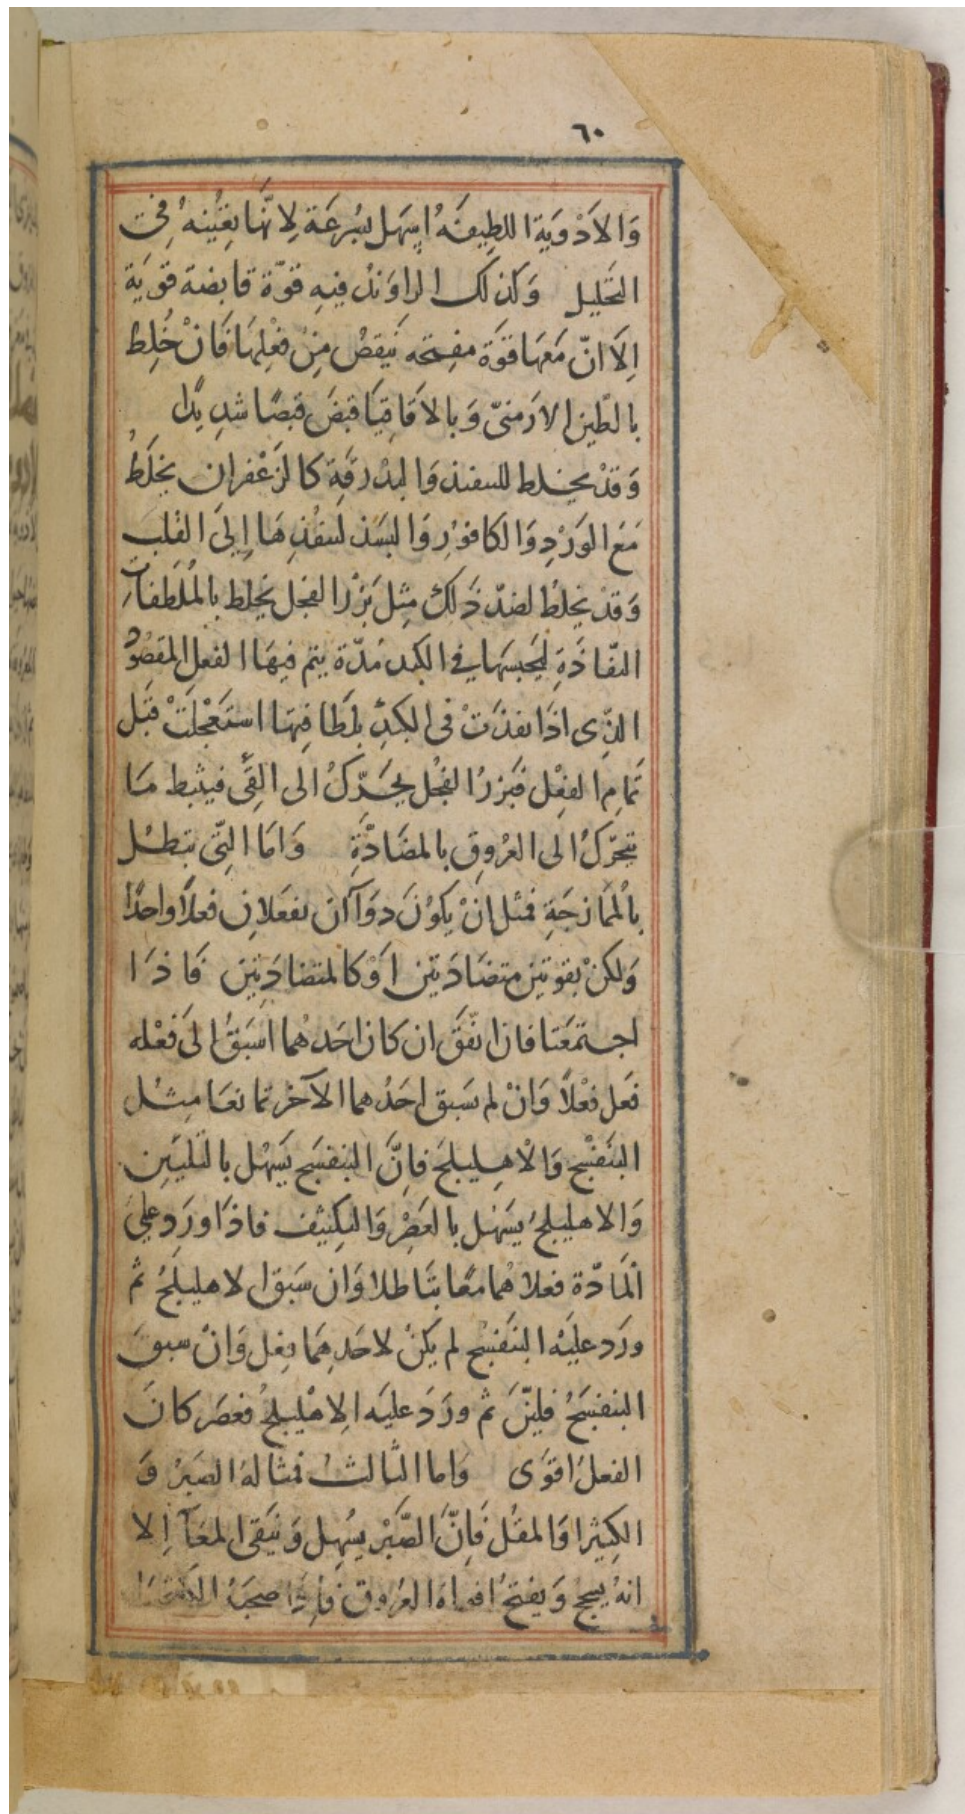 ٦٠
وَالاَدْوَيَة اللطِيفَةُ اِسهَل بسُرعَة لِانّهَا بعَيْنهُ فِى
التحَليل وَكذلك الراوَند فيهِ قوّة قابضة قوَيَة
اِلاَ انّ مَعهَا قوّة مفتحه تنيقصُ مِنْ فعْلِهَا فَانْ خُلِط
بالطّين الارَمنىّ وَبالاَقاقيَا قبَضَ قبضًا شدِيدًا
وَقدْ يخلط للنفيذ وَالبدْرقَةِ كالزعْفران يخلَطُ
مَعَ الوَرْدِ وَالكافوْرِ وَالبسَذ لينفذِهَا اِلىَ القلب
وَقدْ يخلطُ لضدّ ذَلكَ مِثل بَزْر الفجل يخلط بالمُلَطفَاتِ
النفّاذَةِ ليَحبسهَا في الكبد مُدّة يتم فيهَا الفعل المقصُودُ
الذّى اذَا نفذَتْ فى الكبدِ بلطَافتِهَا استَعْجلَتْ قبَل
تمَامِ الفِعْل فبَزرُ الفجُل يحَرّكُ الى القَئ فيثبط مَا
يتحَرّكُ الى العرُوقِ بالمضَادّةِ وَامَا التّى تبطل
بالْممَازجَةِ فمثل انْ يكوُنَ دوَآآن يفعَلانِ فعلاً واحدًا
وَلكنْ بقوتيَن متضَادَتيَن اَوْ كالمتضَادَتيِن فاذَا
اجتمَعَتا فان اتّفَقَ ان كانَ احَدهُما اسَبقُ الىَ فعْله
فعَل فعْلاً وَانْ لم يسَبق احَدُهما الآخرَ تمَانعَا مِثل
البَنفسْج وَالْاهِليلج فانّ البنفسَج يسَهْل بالتليَين
وَالاهليلجُ يسَهل بالعَصْرِ وَالتكثيف فاذَا ورَد علىَ
المَادّة فعلاهُما معًا تبَاطلا وَان سَبق الاهليلجُ ثم
ورَد عليَه البَنفسَج لم يكنْ لاحَدهِمَا فعِل وَانْ سبق
البنفسَجُ فليّنَ ثم ورَدَ عليَه الاهْليلجُ فعصَر كانَ
الفعلُ اقوَى وَاما الثّالثُ فمثَالهُ الصَبْرُ وَ
الكثيرا وَالمقْل فَانّ الصّبْر يسُهل وَينقى المعَآ اِلا
انهُ يسحج وَيفتحُ افواهَ العرُوق فاِذا صحبَهُ الكثيرا